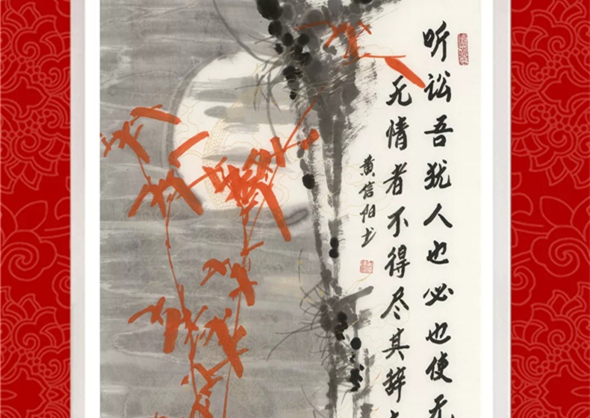 听讼吾犹人也必也使无
无情者不得尽其辞
黄信阳书